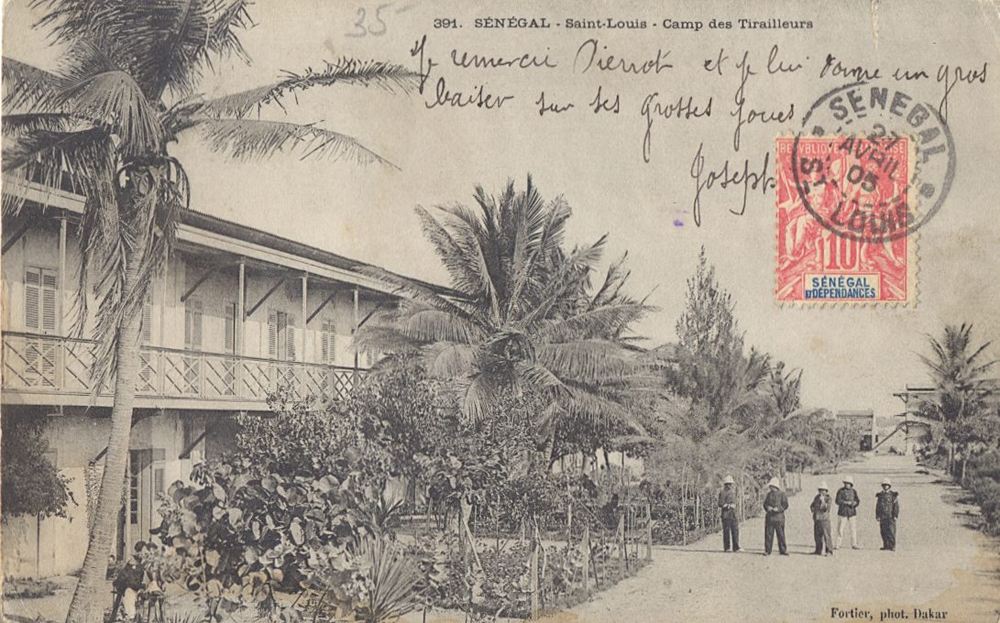 35-
391. SÉNÉGAL - Saint-Louis - Camp des Tirailleurs
Je remercie Pierrot et je lui donne un gros
baiser sur ses grosses joues
Joseph
SÉNÉGAL
27
AVRIL
05
ST LOUIS
RÉPUBLIQUE FRANÇAISE
10
SÉNÉGAL
ET DÉPENDANCES
Fortier, phot. Dakar